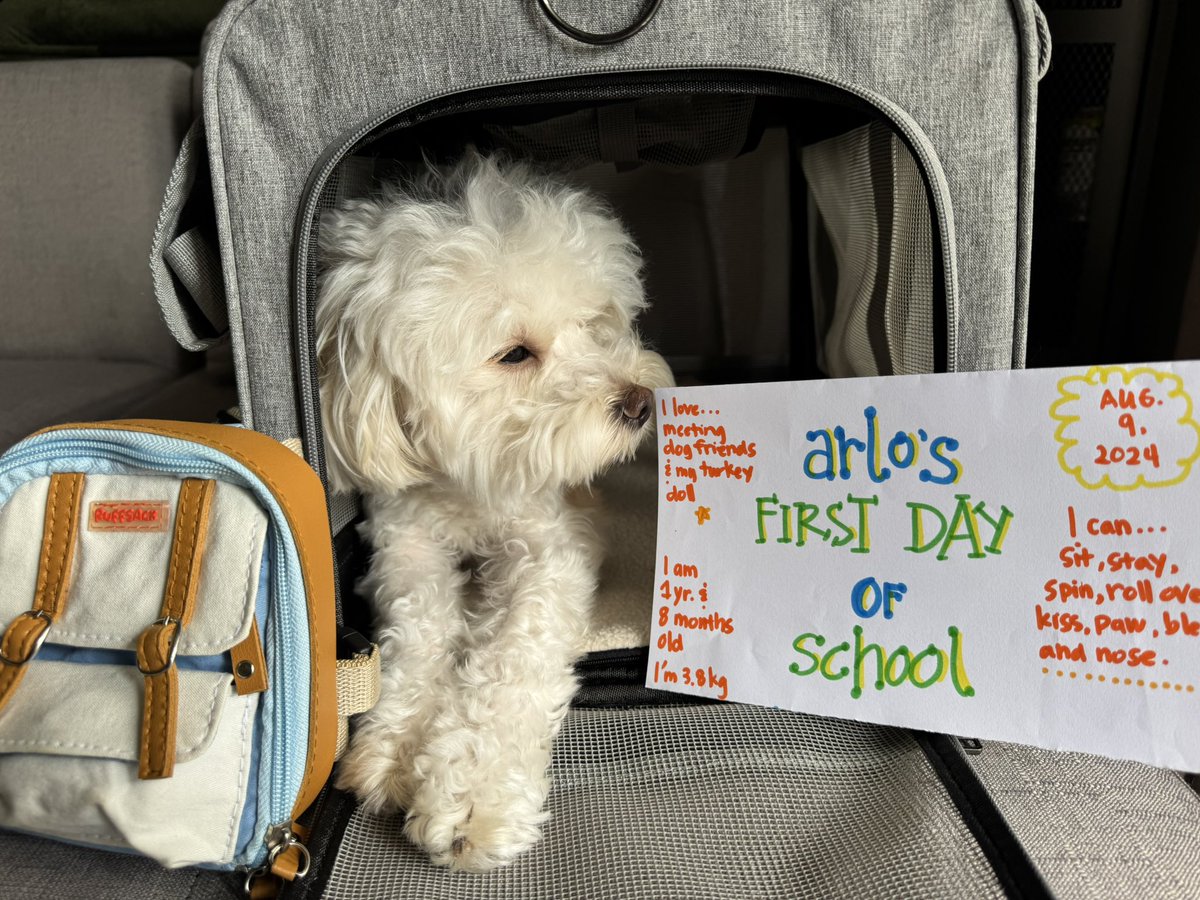 RUFFSACK
I love...
meeting
dog friends
& my turkey
doll
I am
1 yr. &
8 months
old
I'm 3.8kg
arlo's
FIRST DAY
OF
school
AUG.
9,
2024
I can...
sit, stay,
spin, roll
kiss, paw,
and nose.